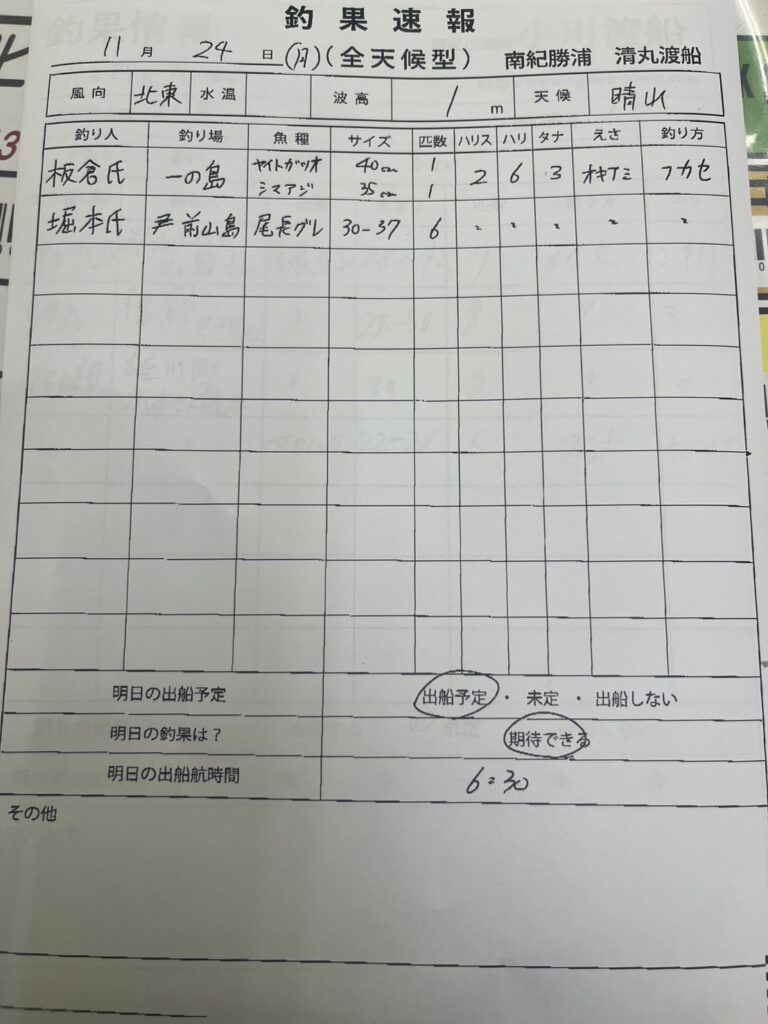 釣果速報
11月24日(月)(全天候型) 南紀勝浦 清丸渡船
風向 北東 水温 波高 1m 天候 晴れ
釣り人 釣り場 魚種 サイズ 匹数 ハリス ハリ タナ えさ 釣り方
板倉氏 一の島 ヤイトガツオ 40cm 1 2 6 3 オキアミ フカセ
シマアジ 35cm 1
堀本氏 前山島 尾長グレ 30-37 6 〃 〃 〃 〃 〃
明日の出船予定 出船予定・未定・出船しない
明日の釣果は? 期待できる
明日の出船航時間 6:30
その他